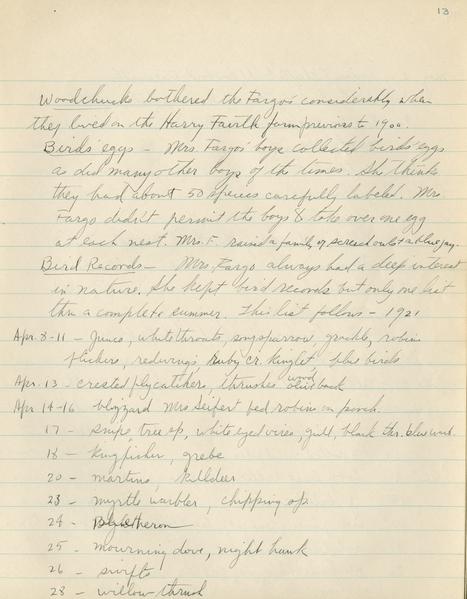 13
Woodchucks bothered the Fargo's considerably when
they lived on the Harry Faith farm previous to 1900.
Birds' eggs - Mrs. Fargo's boys collected birds' eggs
as did many other boys of the times. She thinks
they had about 50 species carefully labeled. Mrs.
Fargo didn't permit the boys to take over one egg
at each nest. Mrs. F. raised a family of screech owls & a blue jay.
Bird Records - Mrs. Fargo always had a deep interest
in nature. She kept bird records but only one list
thru a complete summer. This list follows - 1921
Apr. 8-11 - Junco, whitethroats, songsparrow, grackle, robins
flickers, redwings, Ruby cr. kinglet blue birds
Apr. 13 - crested flycatchers, thrushes wood
Apr 14-16 blizzard Mrs Seifert fed robins on porch.
17 - snipe, tree sp, white eyed vireo, gull, black thr. blue warb.
18 - kingfisher, grebe
20 - martins, killdeer
23 - myrtle warbler, chipping sp.
24 - Blue heron
25 - mourning dove, night hawk
26 - swifts
28 - willow thrush